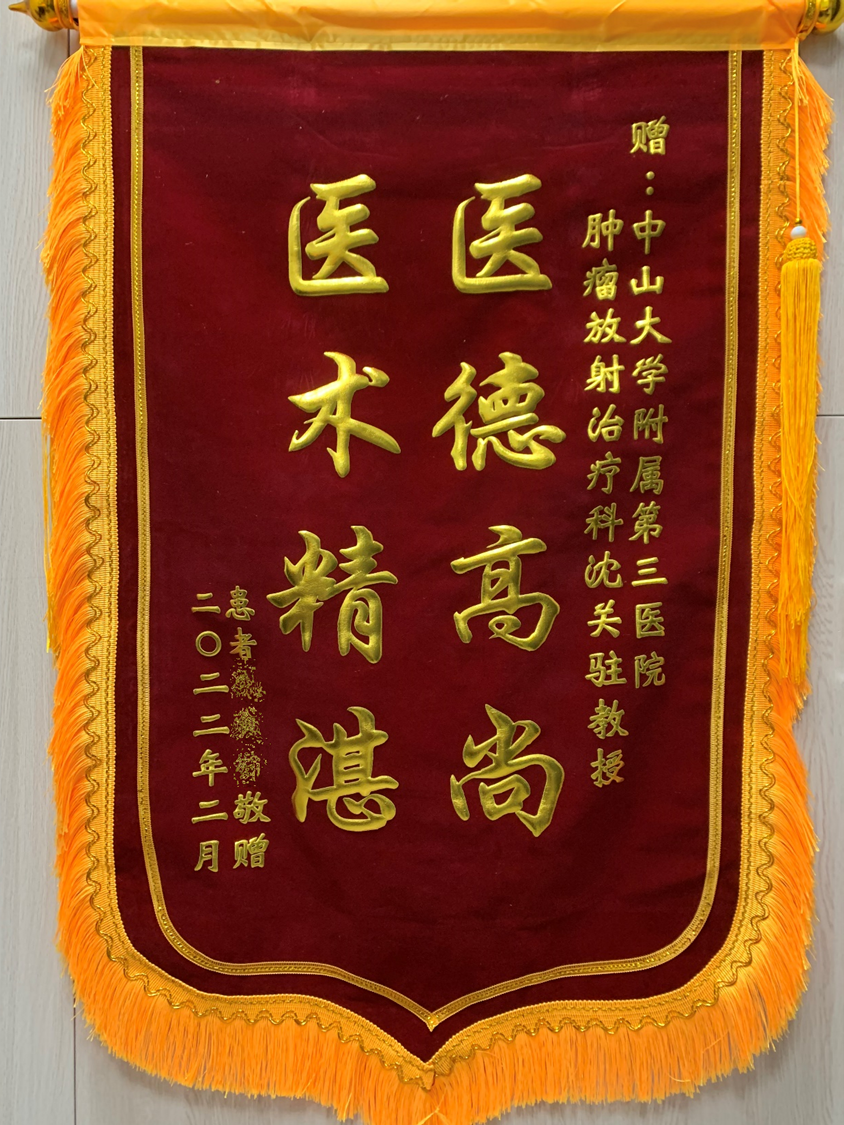 赠：中山大学附属第三医院
肿瘤放射治疗科沈关驻教授
医德高尚
医术精湛
患者敬赠
二〇二二年二月